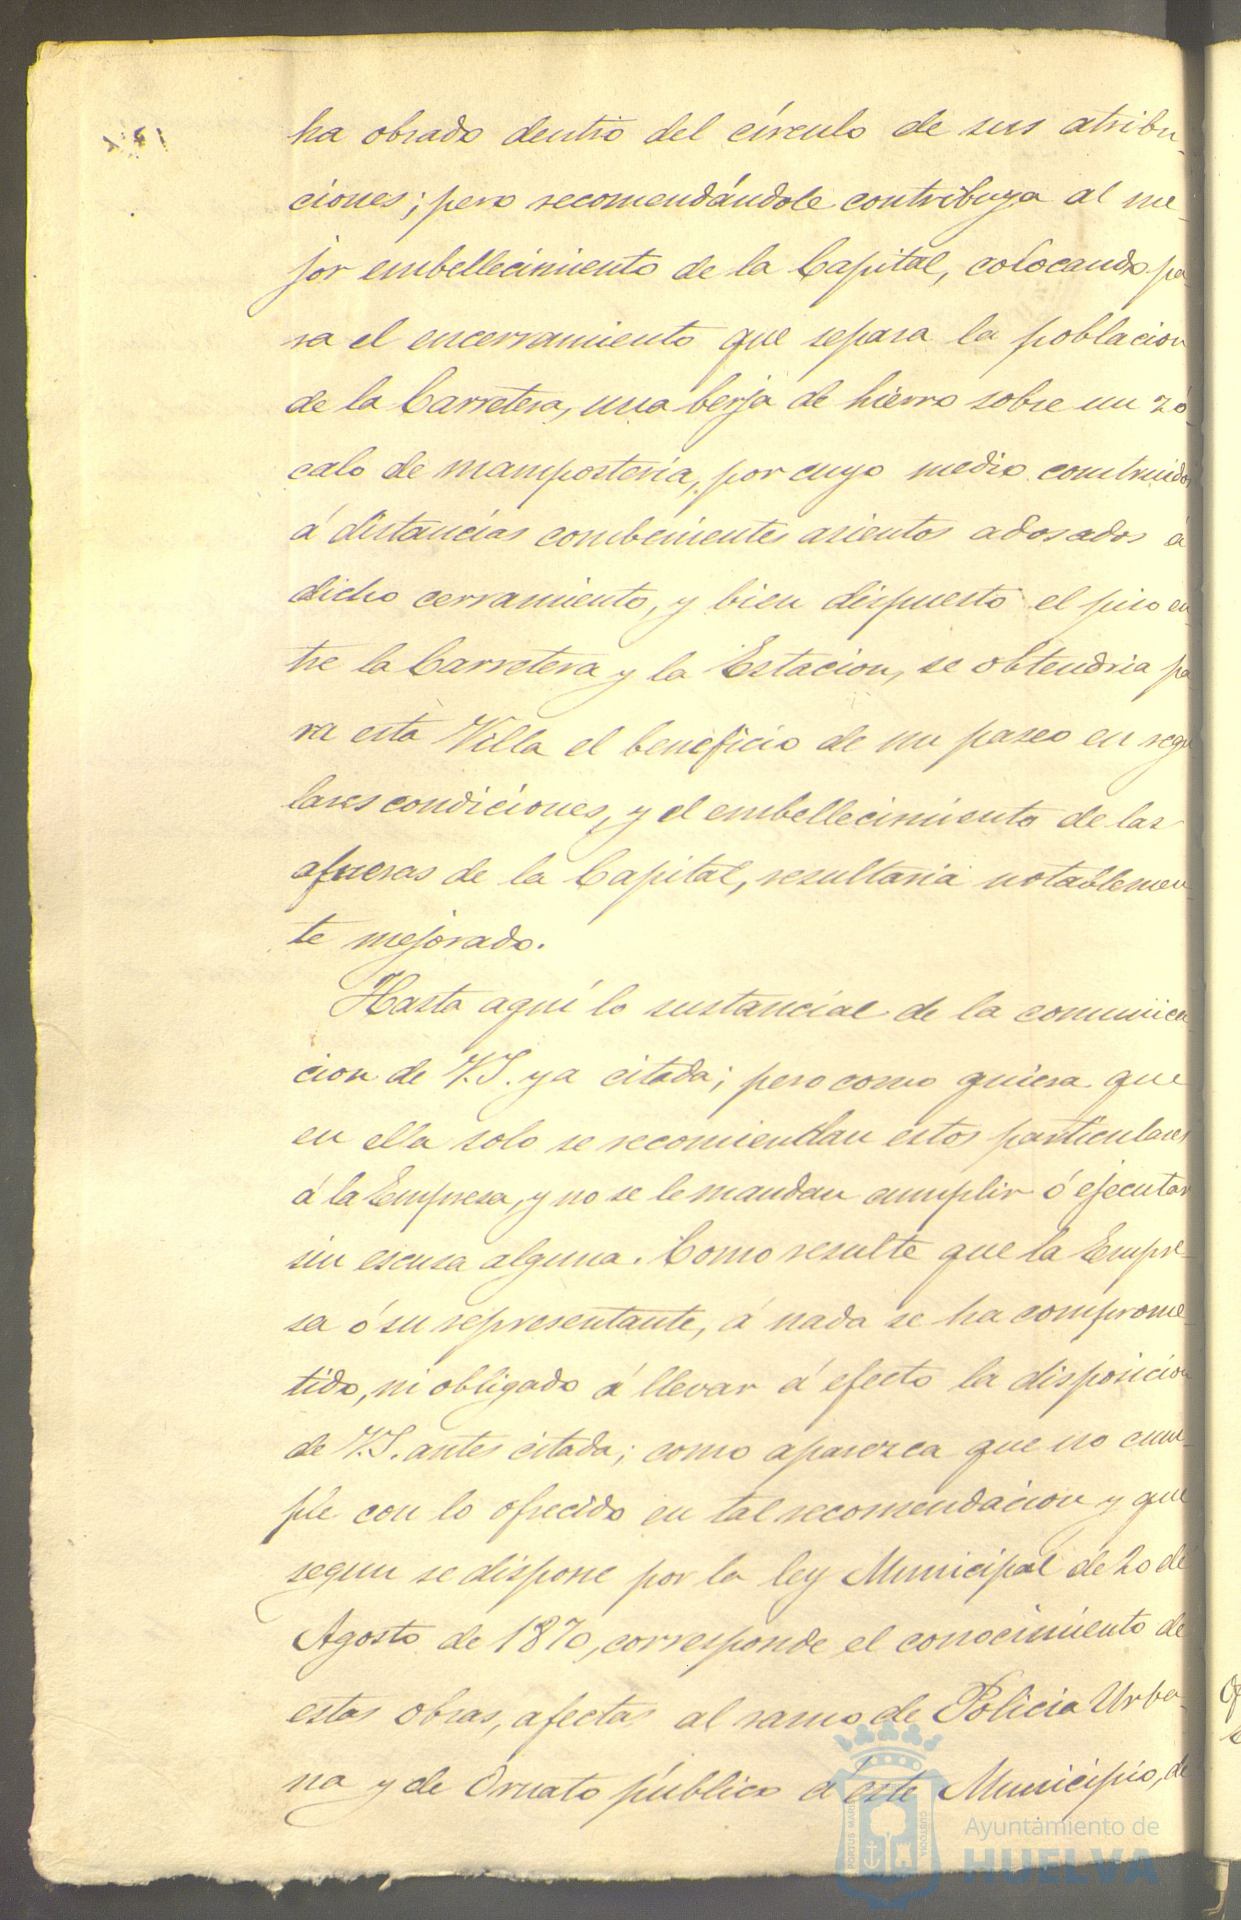 ha obrado dentro del círculo de sus atribu-
ciones; pero recomendándole contribuya al me-
jor embellecimiento de la Capital, colocando pa-
ra el encerramiento que separa la poblacion
de la Carretera, una berja de hierro sobre un zó-
calo de mamposteria, por cuyo medio construidos
á distancias combenientes asientos adosados á
dicho cerramiento, y bien dispuesto el piso en-
tre la Carretera y la Estacion, se obtendria pa-
ra esta Villa el beneficio de un paseo en regu-
lares condiciones, y el embellecimiento de las
afueras de la Capital, resultaria notablemen-
te mejorado.
Hasta aquí lo sustancial de la comunica-
cion de V.S. ya citada; pero como quiera que
en ella solo se recomiendan estos particulares
á la Empresa, y no se le mandan cumplir ó ejecutar
sin escusa alguna. Como resulte que la Empre-
sa ó su representante, á nada se ha comprome-
tido, ni obligado á llevar á efecto la disposicion
de V.S. antes citada; como aparezca que no cum-
ple con lo ofrecido en tal recomendacion y que
segun se dispone por la ley Municipal de 20 de
Agosto de 1870, corresponde el conocimiento de
estas obras, afectas al ramo de Policia Urba-
na y de Ornato público á este Municipio, de
Ayuntamiento de
HUELVA